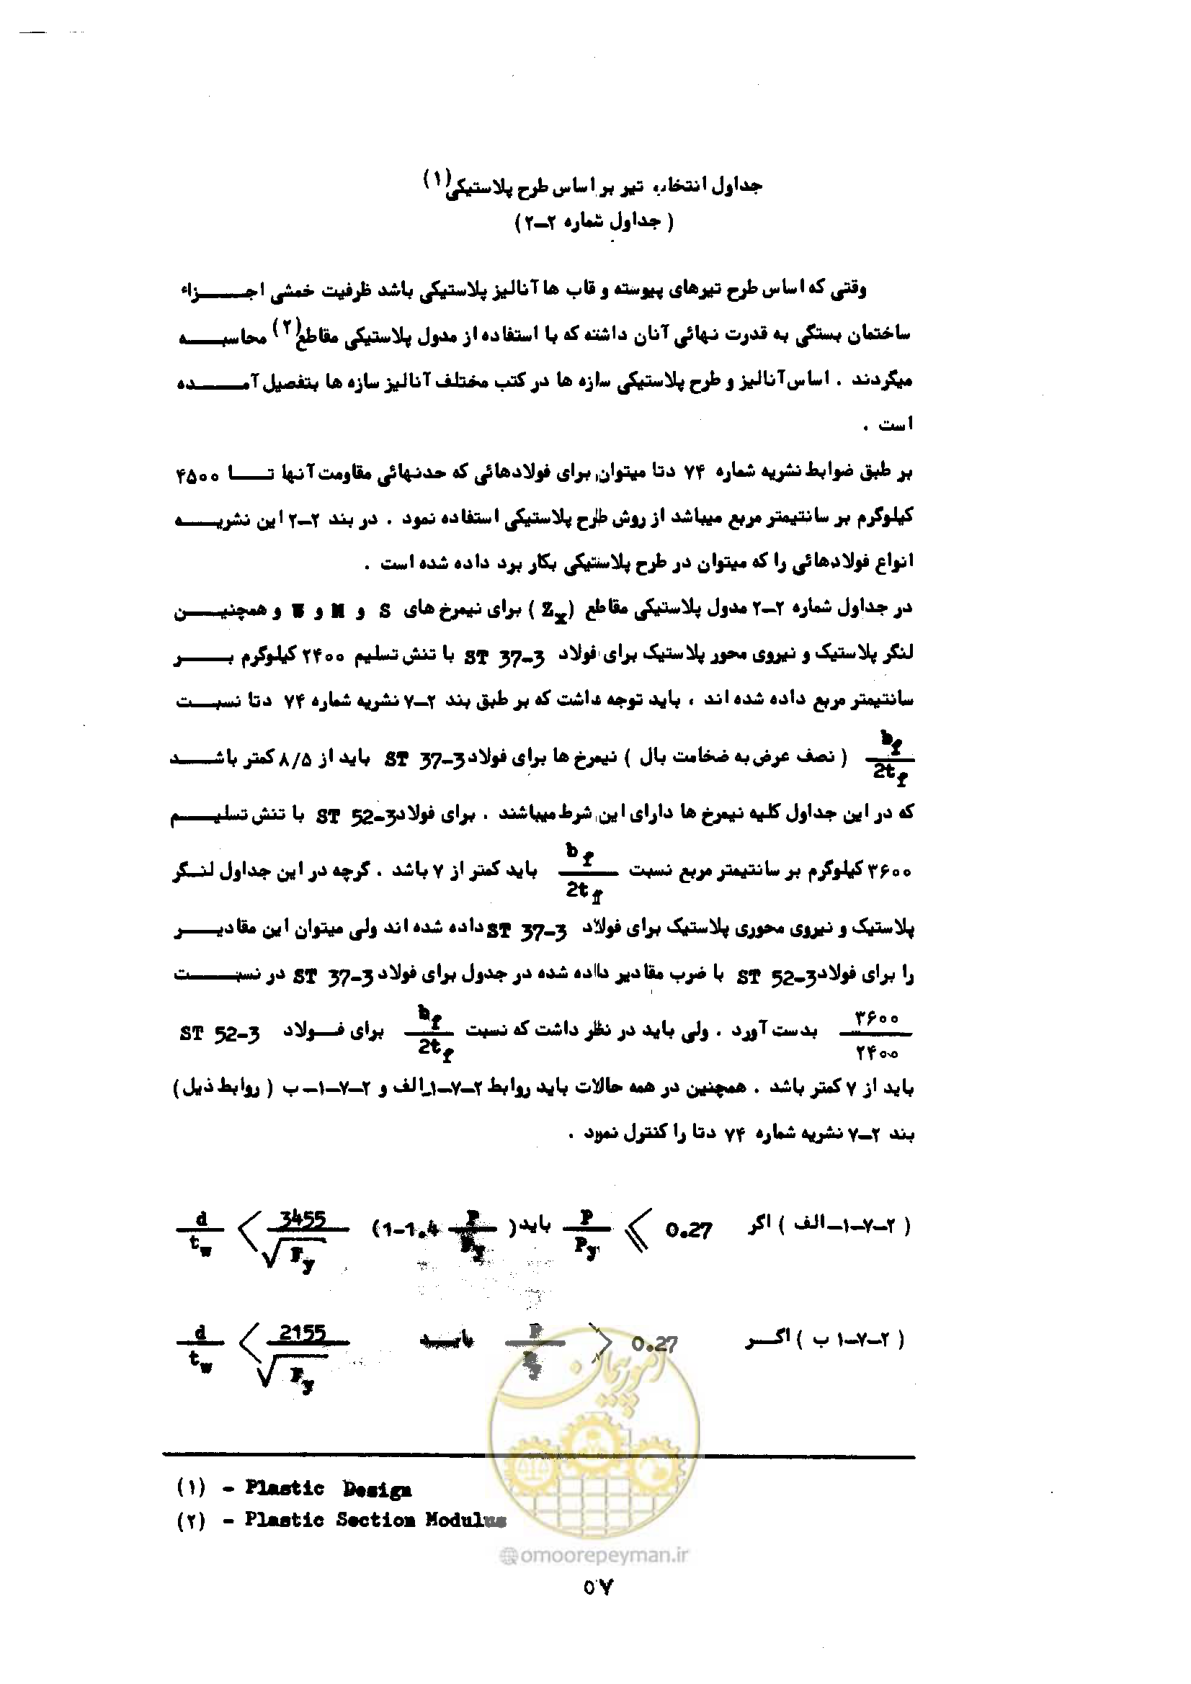 جداول انتخاب تیر بر اساس طرح پلاستیکی(۱)
( جداول شماره ۲–۲ )
وقتی که اساس طرح تیرهای پیوسته و قاب ها آنالیز پلاستیکی باشد ظرفیت خمشی اجـــــزاء
ساختمان بستگی به قدرت نهائی آنان داشته که با استفاده از مدول پلاستیکی مقاطع(۲) محاسبــــه
میگردند . اساس آنالیز و طرح پلاستیکی سازه ها در کتب مختلف آنالیز سازه ها بتفصیل آمـــــده
است .
بر طبق ضوابط نشریه شماره ۷۴ دتا میتوان برای فولادهائی که حدنهائی مقاومت آنها تـــا ۴۵۰۰
کیلوگرم بر سانتیمتر مربع میباشد از روش طرح پلاستیکی استفاده نمود . در بند ۲–۲ این نشریـــه
انواع فولادهائی را که میتوان در طرح پلاستیکی بکار برد داده شده است .
در جداول شماره ۲–۲ مدول پلاستیکی مقاطع (Zx) برای نیمرخ های S و M و W و همچنیـــن
لنگر پلاستیک و نیروی محور پلاستیک برای فولاد ST 37-3 با تنش تسلیم ۲۴۰۰ کیلوگرم بـــــر
سانتیمتر مربع داده شده اند ، باید توجه داشت که بر طبق بند ۲–۷ نشریه شماره ۷۴ دتا نسبـــت
bf/2tf ( نصف عرض به ضخامت بال ) نیمرخ ها برای فولاد ST 37-3 باید از ۸/۵ کمتر باشــــد
که در این جداول کلیه نیمرخ ها دارای این شرط میباشند . برای فولاد ST 52-3 با تنش تسلیـــم
۳۶۰۰ کیلوگرم بر سانتیمتر مربع نسبت bf/2tf باید کمتر از ۷ باشد . گرچه در این جداول لنـگر
پلاستیک و نیروی محوری پلاستیک برای فولاد ST 37-3 داده شده اند ولی میتوان این مقادیـــر
را برای فولاد ST 52-3 با ضرب مقادیر داده شده در جدول برای فولاد ST 37-3 در نسبـــــت
۳۶۰۰/۲۴۰۰ بدست آورد . ولی باید در نظر داشت که نسبت bf/2tf برای فـــولاد ST 52-3
باید از ۷ کمتر باشد . همچنین در همه حالات باید روابط ۲–۷–۱–الف و ۲–۷–۱– ب ( روابط ذیل )
بند ۲–۷ نشریه شماره ۷۴ دتا را کنترل نمود .
( ۲–۷–۱–الف ) اگر P/Py ≤ 0.27 باید d/tw < 3455/√Fy (1-1.4 P/Py)
( ۲–۷–۱ ب ) اگـــر P/Py > 0.27 بایــد d/tw < 2155/√Fy
امور پیمان
(۱) - Plastic Design
(۲) - Plastic Section Modulus
@omoorepeyman.ir
۵۷